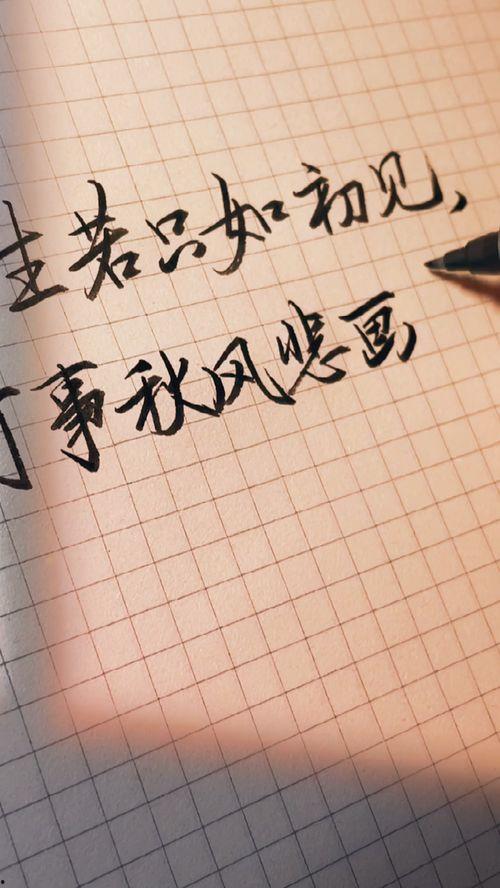 生若只如初见,
事秋风悲画